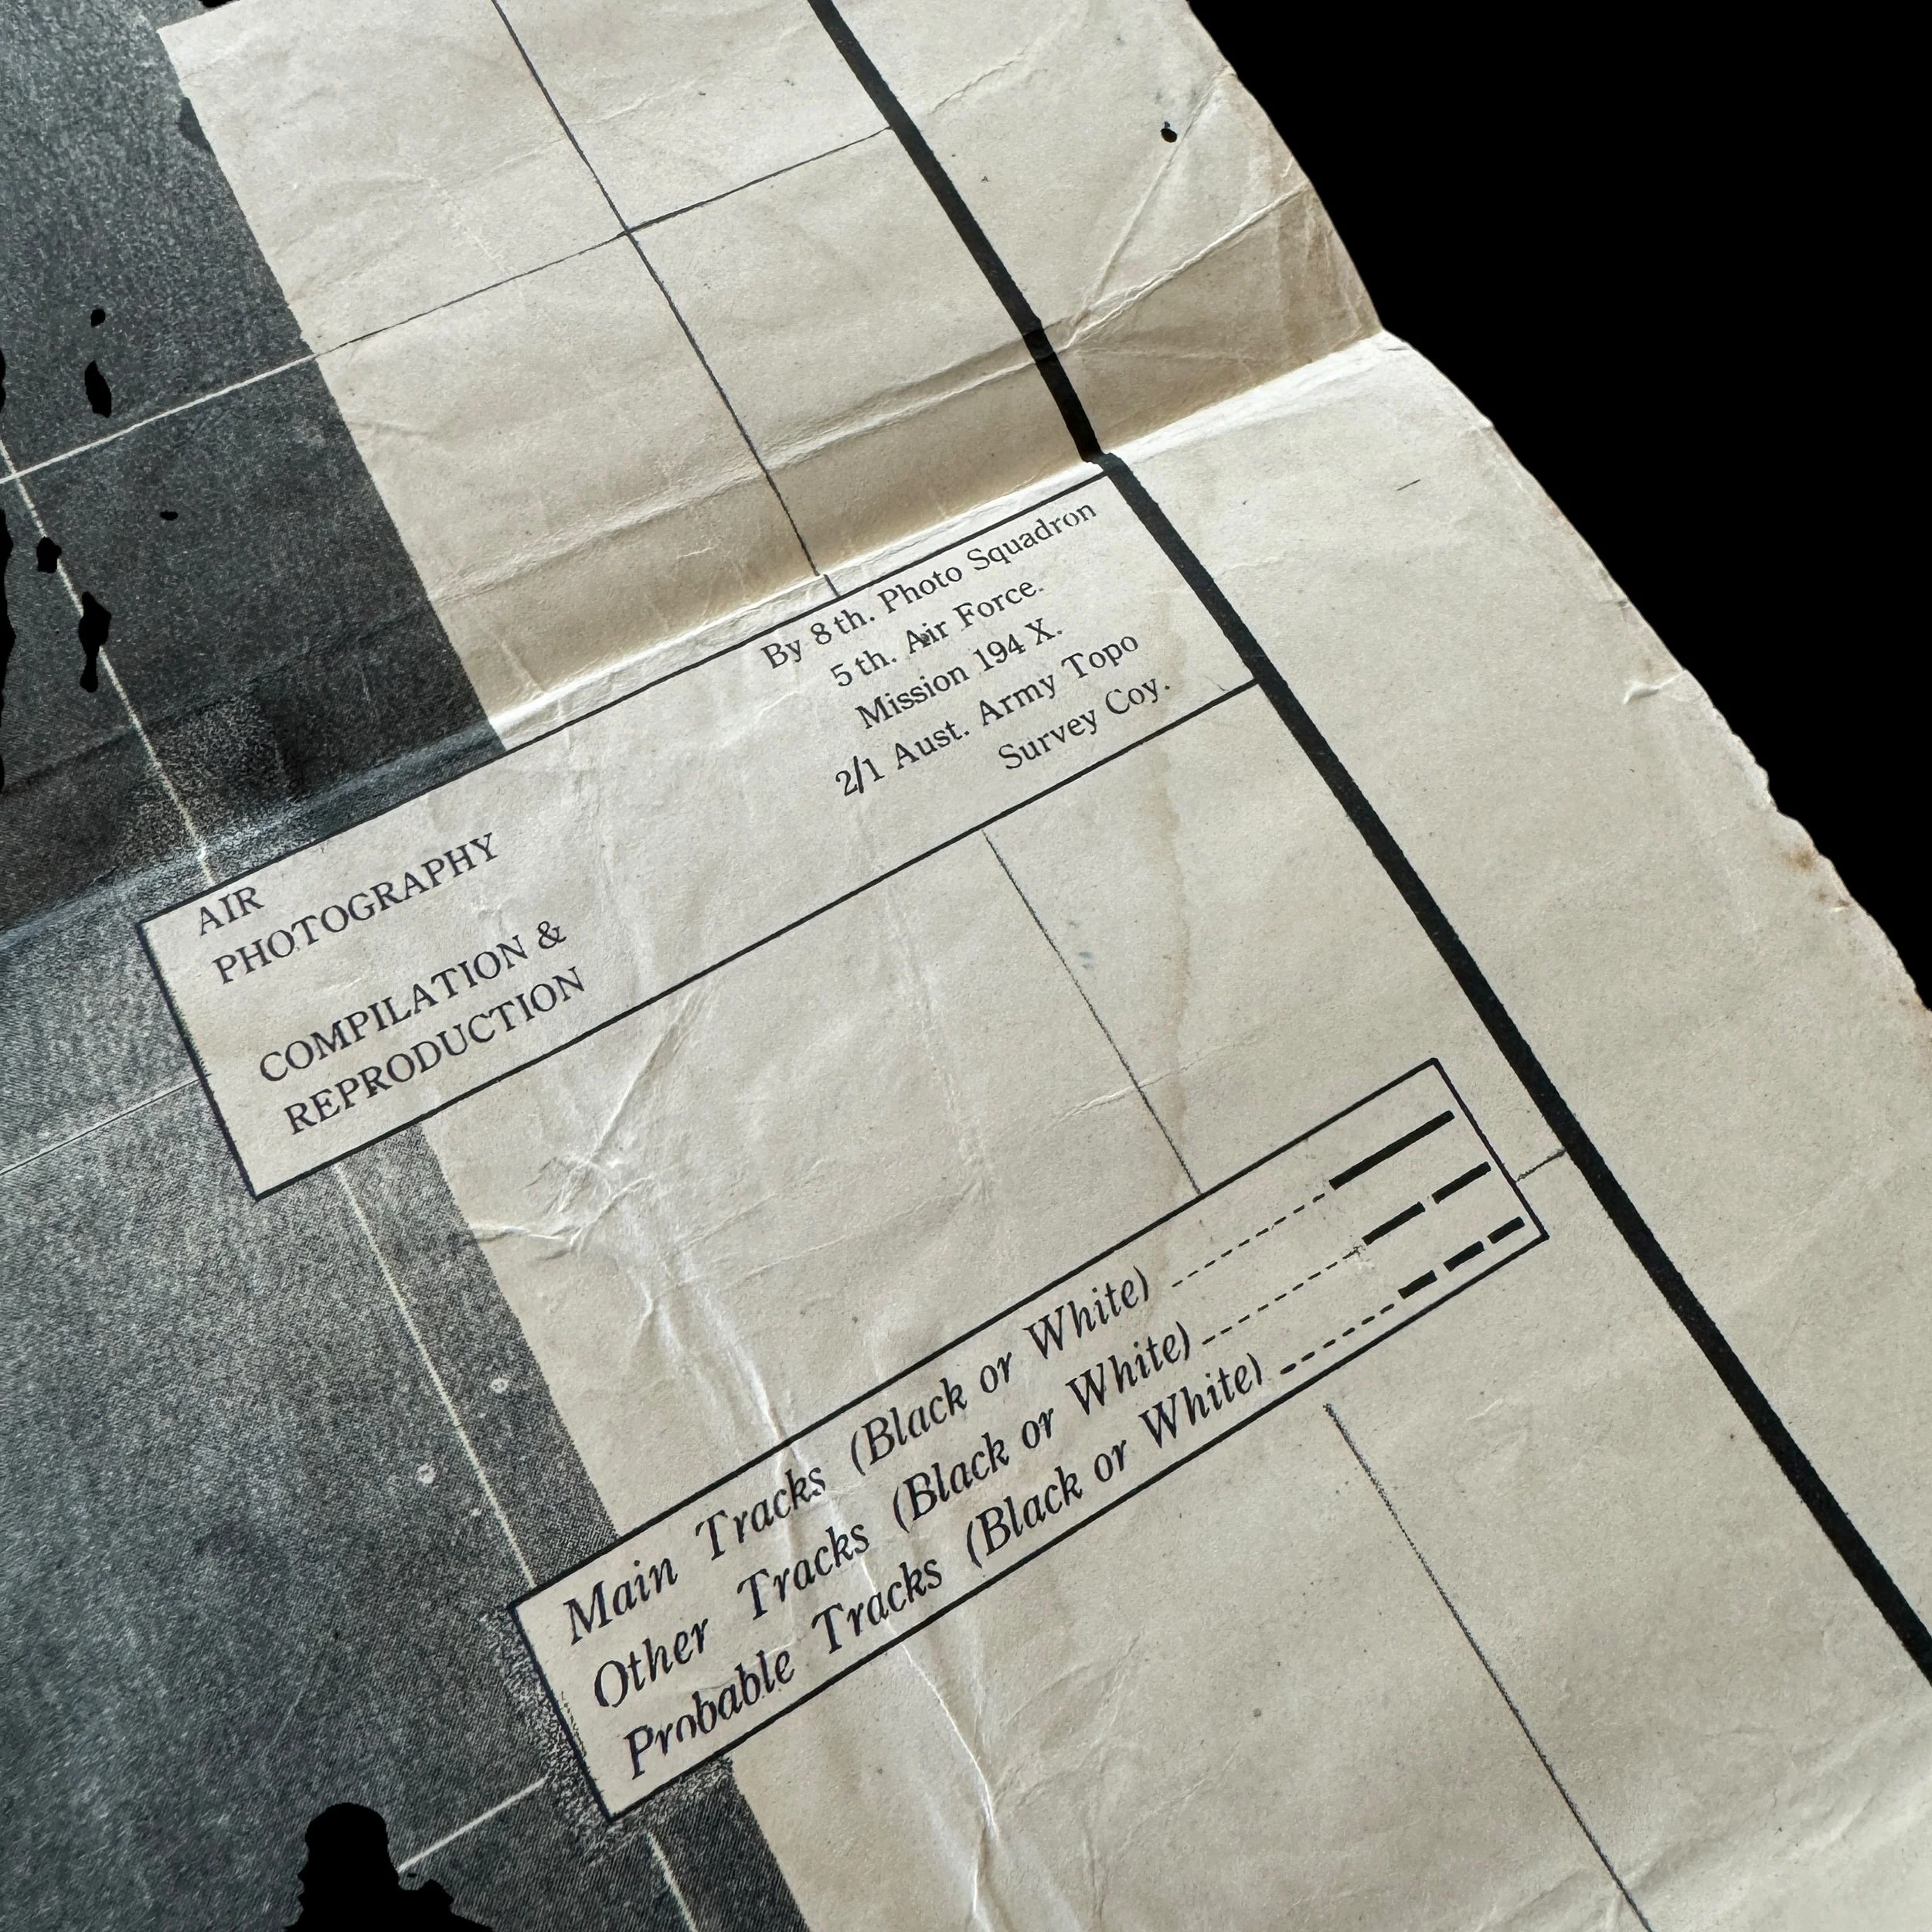 AIR
PHOTOGRAPHY
By 8th. Photo Squadron
5th. Air Force.
Mission 194 X.
COMPILATION &
REPRODUCTION
2/1 Aust. Army Topo
Survey Coy.
Main Tracks (Black or White)
Other Tracks (Black or White)
Probable Tracks (Black or White)